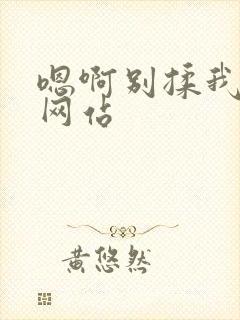 嗯啊别揉我
网佔
黄悠然